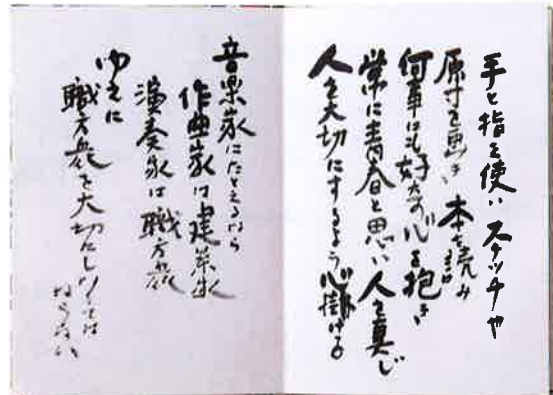 手と指を使い スケッチや
原寸を画き 本を読み
何事にも好奇心を抱き
常に青春と思い 人を真じ
人を大切にするよう心掛ける
音楽家にたとえるなら
作曲家は建築家
演奏家は職方衆
ゆえに
職方衆を大切にしなくては
ならない